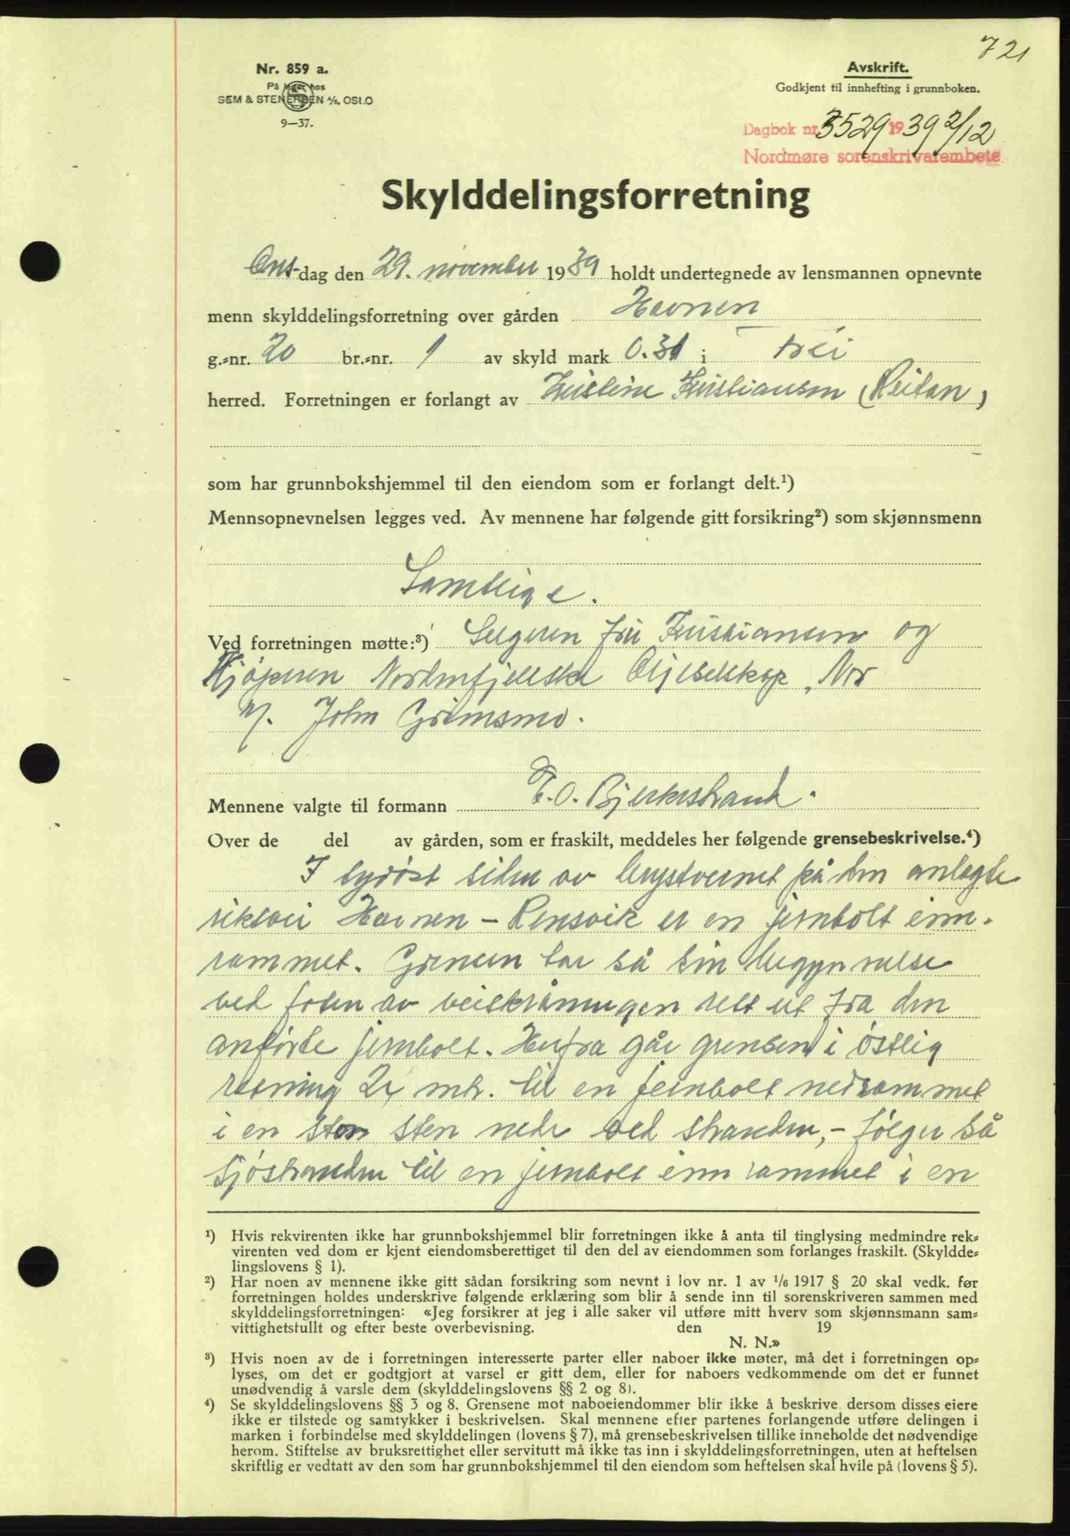 721
Nr. 859 a.
På lager hos
SEM & STENERSEN A/S, OSLO
9—37.
Avskrift.
Godkjent til innhefting i grunnboken.
Dagbok nr. 3529 1939 2/12
Nordmøre sorenskriverembete
Skylddelingsforretning
Ons-dag den 29. november 1939 holdt undertegnede av lensmannen opnevnte
menn skylddelingsforretning over gården Havnen
g.-nr. 20 br.-nr. 1 av skyld mark 0.31 i Frei
herred. Forretningen er forlangt av Kristine Kristiansen (Reitan)
som har grunnbokshjemmel til den eiendom som er forlangt delt.¹)
Mennsopnevnelsen legges ved. Av mennene har følgende gitt forsikring²) som skjønnsmenn
Samtlige.
Ved forretningen møtte:³) Selgeren fru Kristiansen og
Kjøperen Nordenfjelske Oljeselskap, Nor
v/. John Grimsmo.
Mennene valgte til formann E. O. Bjerkestrand.
Over de del av gården, som er fraskilt, meddeles her følgende grensebeskrivelse.⁴)
I sydøst siden av brystvernet på den anlagte
riksvei Havnen - Rensvik er en jernbolt inn-
rammet. Grensen tar så sin begynnelse
ved foten av veiskråningen rett ut fra den
anførte jernbolt. Herfra går grensen i østlig
retning mtr. til en jernbolt nedrammet
i en stor sten nede ved stranden, - følger så
sjøstranden til en jernbolt inn rammet i en
¹) Hvis rekvirenten ikke har grunnbokshjemmel blir forretningen ikke å anta til tinglysing medmindre rek-
virenten ved dom er kjent eiendomsberettiget til den del av eiendommen som forlanges fraskilt. (Skyldde-
lingslovens § 1).
²) Har noen av mennene ikke gitt sådan forsikring som nevnt i lov nr. 1 av 1/6 1917 § 20 skal vedk. før
forretningen holdes underskrive følgende erklæring som blir å sende inn til sorenskriveren sammen med
skylddelingsforretningen: «Jeg forsikrer at jeg i alle saker vil utføre mitt hverv som skjønnsmann sam-
vittighetsfullt og efter beste overbevisning. den 19
N. N.»
³) Hvis noen av de i forretningen interesserte parter eller naboer ikke møter, må det i forretningen op-
lyses, om det er godtgjort at varsel er gitt dem, eller for naboers vedkommende om det er funnet
unødvendig å varsle dem (skylddelingslovens §§ 2 og 8).
⁴) Se skylddelingslovens §§ 3 og 8. Grensene mot naboeiendommer blir ikke å beskrive dersom disses eiere
ikke er tilstede og samtykker i beskrivelsen. Skal mennene efter partenes forlangende utføre delingen i
marken i forbindelse med skylddelingen (lovens § 7), må grensebeskrivelsen tillike inneholde det nødvendige
herom. Stiftelse av bruksrettighet eller servitutt må ikke tas inn i skylddelingsforretningen, uten at heftelsen
skriftlig er vedtatt av den som har grunnbokshjemmel til den eiendom som heftelsen skal hvile på (lovens § 5).